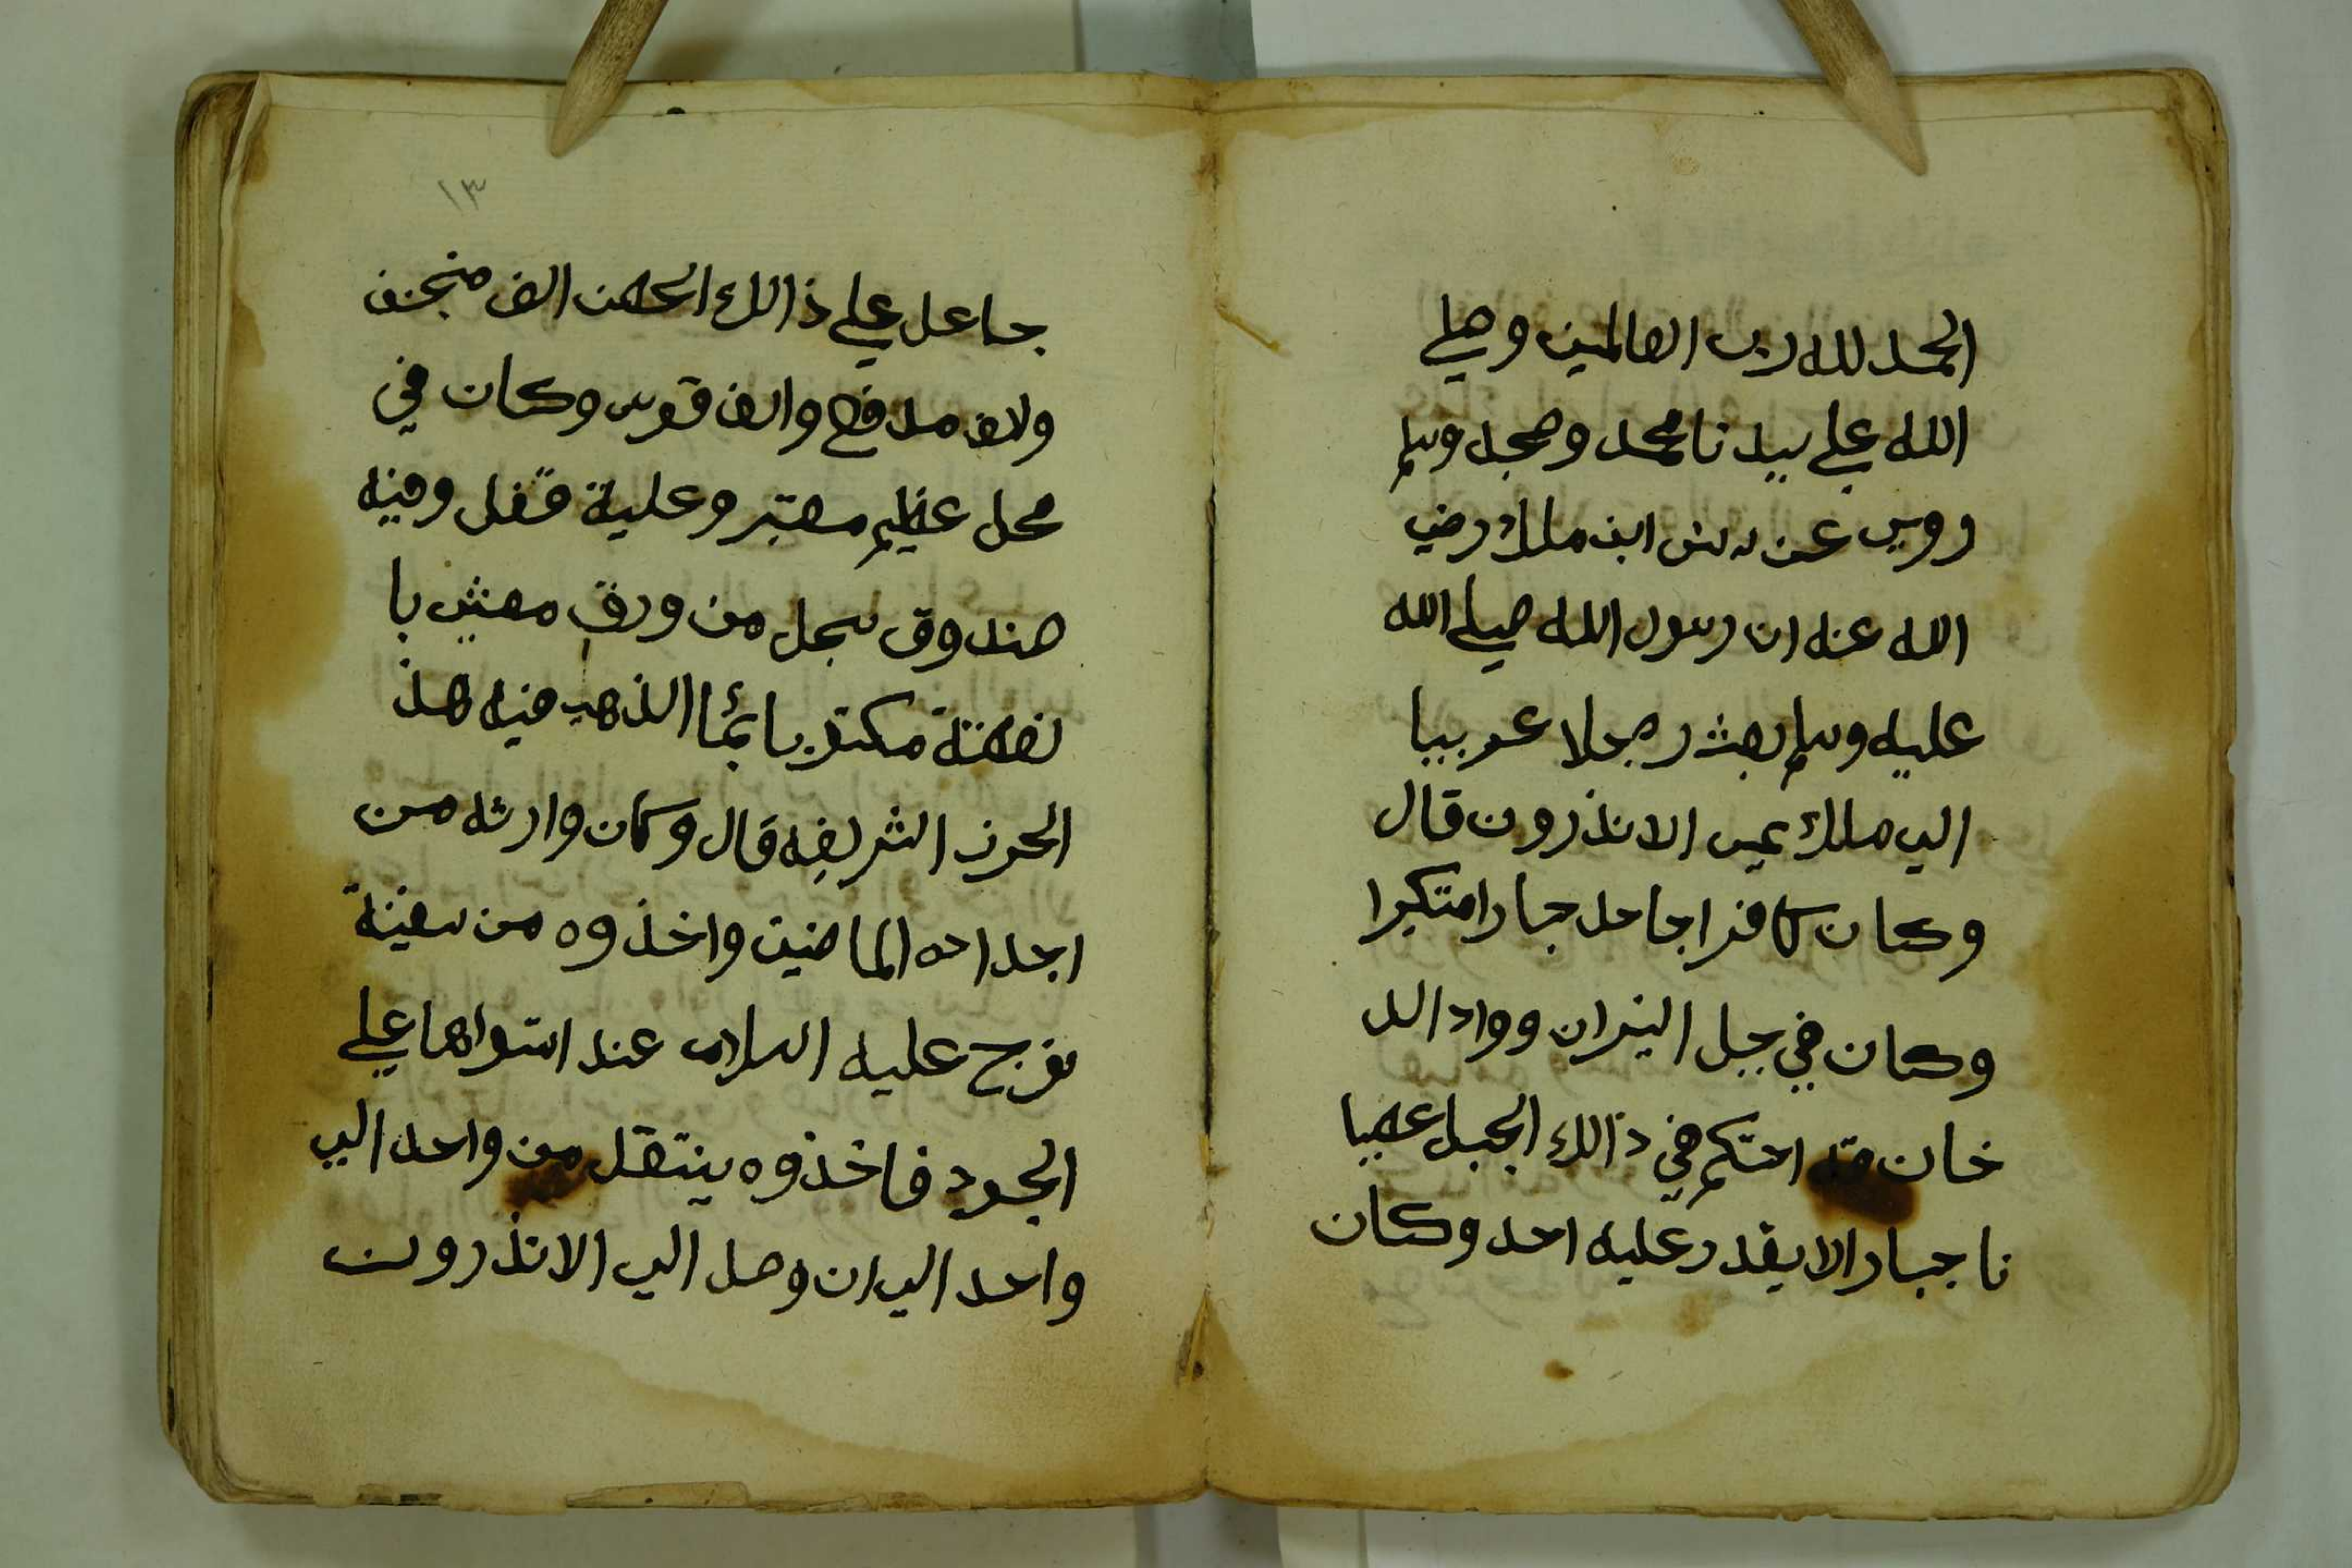 الحمد لله رب العالمين وصلي
الله علي سيدنا محمد وصحبه وسلم
روي عن انس ابن ملك رضي
الله عنه ان رسول الله صلي الله
عليه وسلم بعث رجلا عربيا
الي ملك يمي الانذرون قال
وكان كافرا جاحد جبارا متكبرا
وكان في جبل النيران وواد الد
خان قد احتكم في ذالك الجبل عصيا
نا جبارا لا يقدر عليه احد وكان
١٣
جاعل علي ذالك الحصن الف منجنف
ولاف مدفع والف قوس وكان في
محل عظيم معتبر وعلية قفل وفيه
صندوق سجل من ورق مغشي با
لفضة مكتوب بائما الذهب فيه هذ
الحرز الشريفه قال وكان وارثه من
اجداده الماضين واخذوه من سفينة
نوح عليه السلام عند استواها علي
الجودي فاخذوه ينتقل من واحد الي
واحد الي ان وصل الي الانذرون